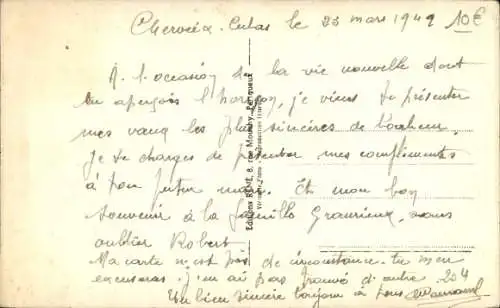 Cherveix-Cubas le 23 mars 1949
10€
A l'occasion de la vie nouvelle dont
tu aperçois l'horizon, je viens te présenter
mes vœux les plus sincères de bonheur.
Je te charges de présenter mes compliments
à ton futur mari. Et mon bon
souvenir à la famille sans
oublier Robert
Ma carte n'est pas de circonstance. tu m'en
excuseras. J'en ai pas trouvé d'autre 204
bien sincère bonjour à tous
Editions 8, rue Périgueux